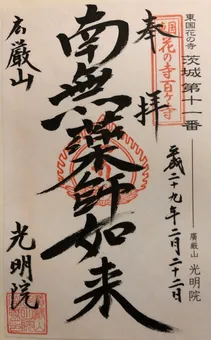 東国花の寺 茨城 第十一番
廣厳山 光明院
奉拝
東国花の寺百ヶ寺
平成二十九年二月二十二日
南無薬師如来
広厳山
光明院